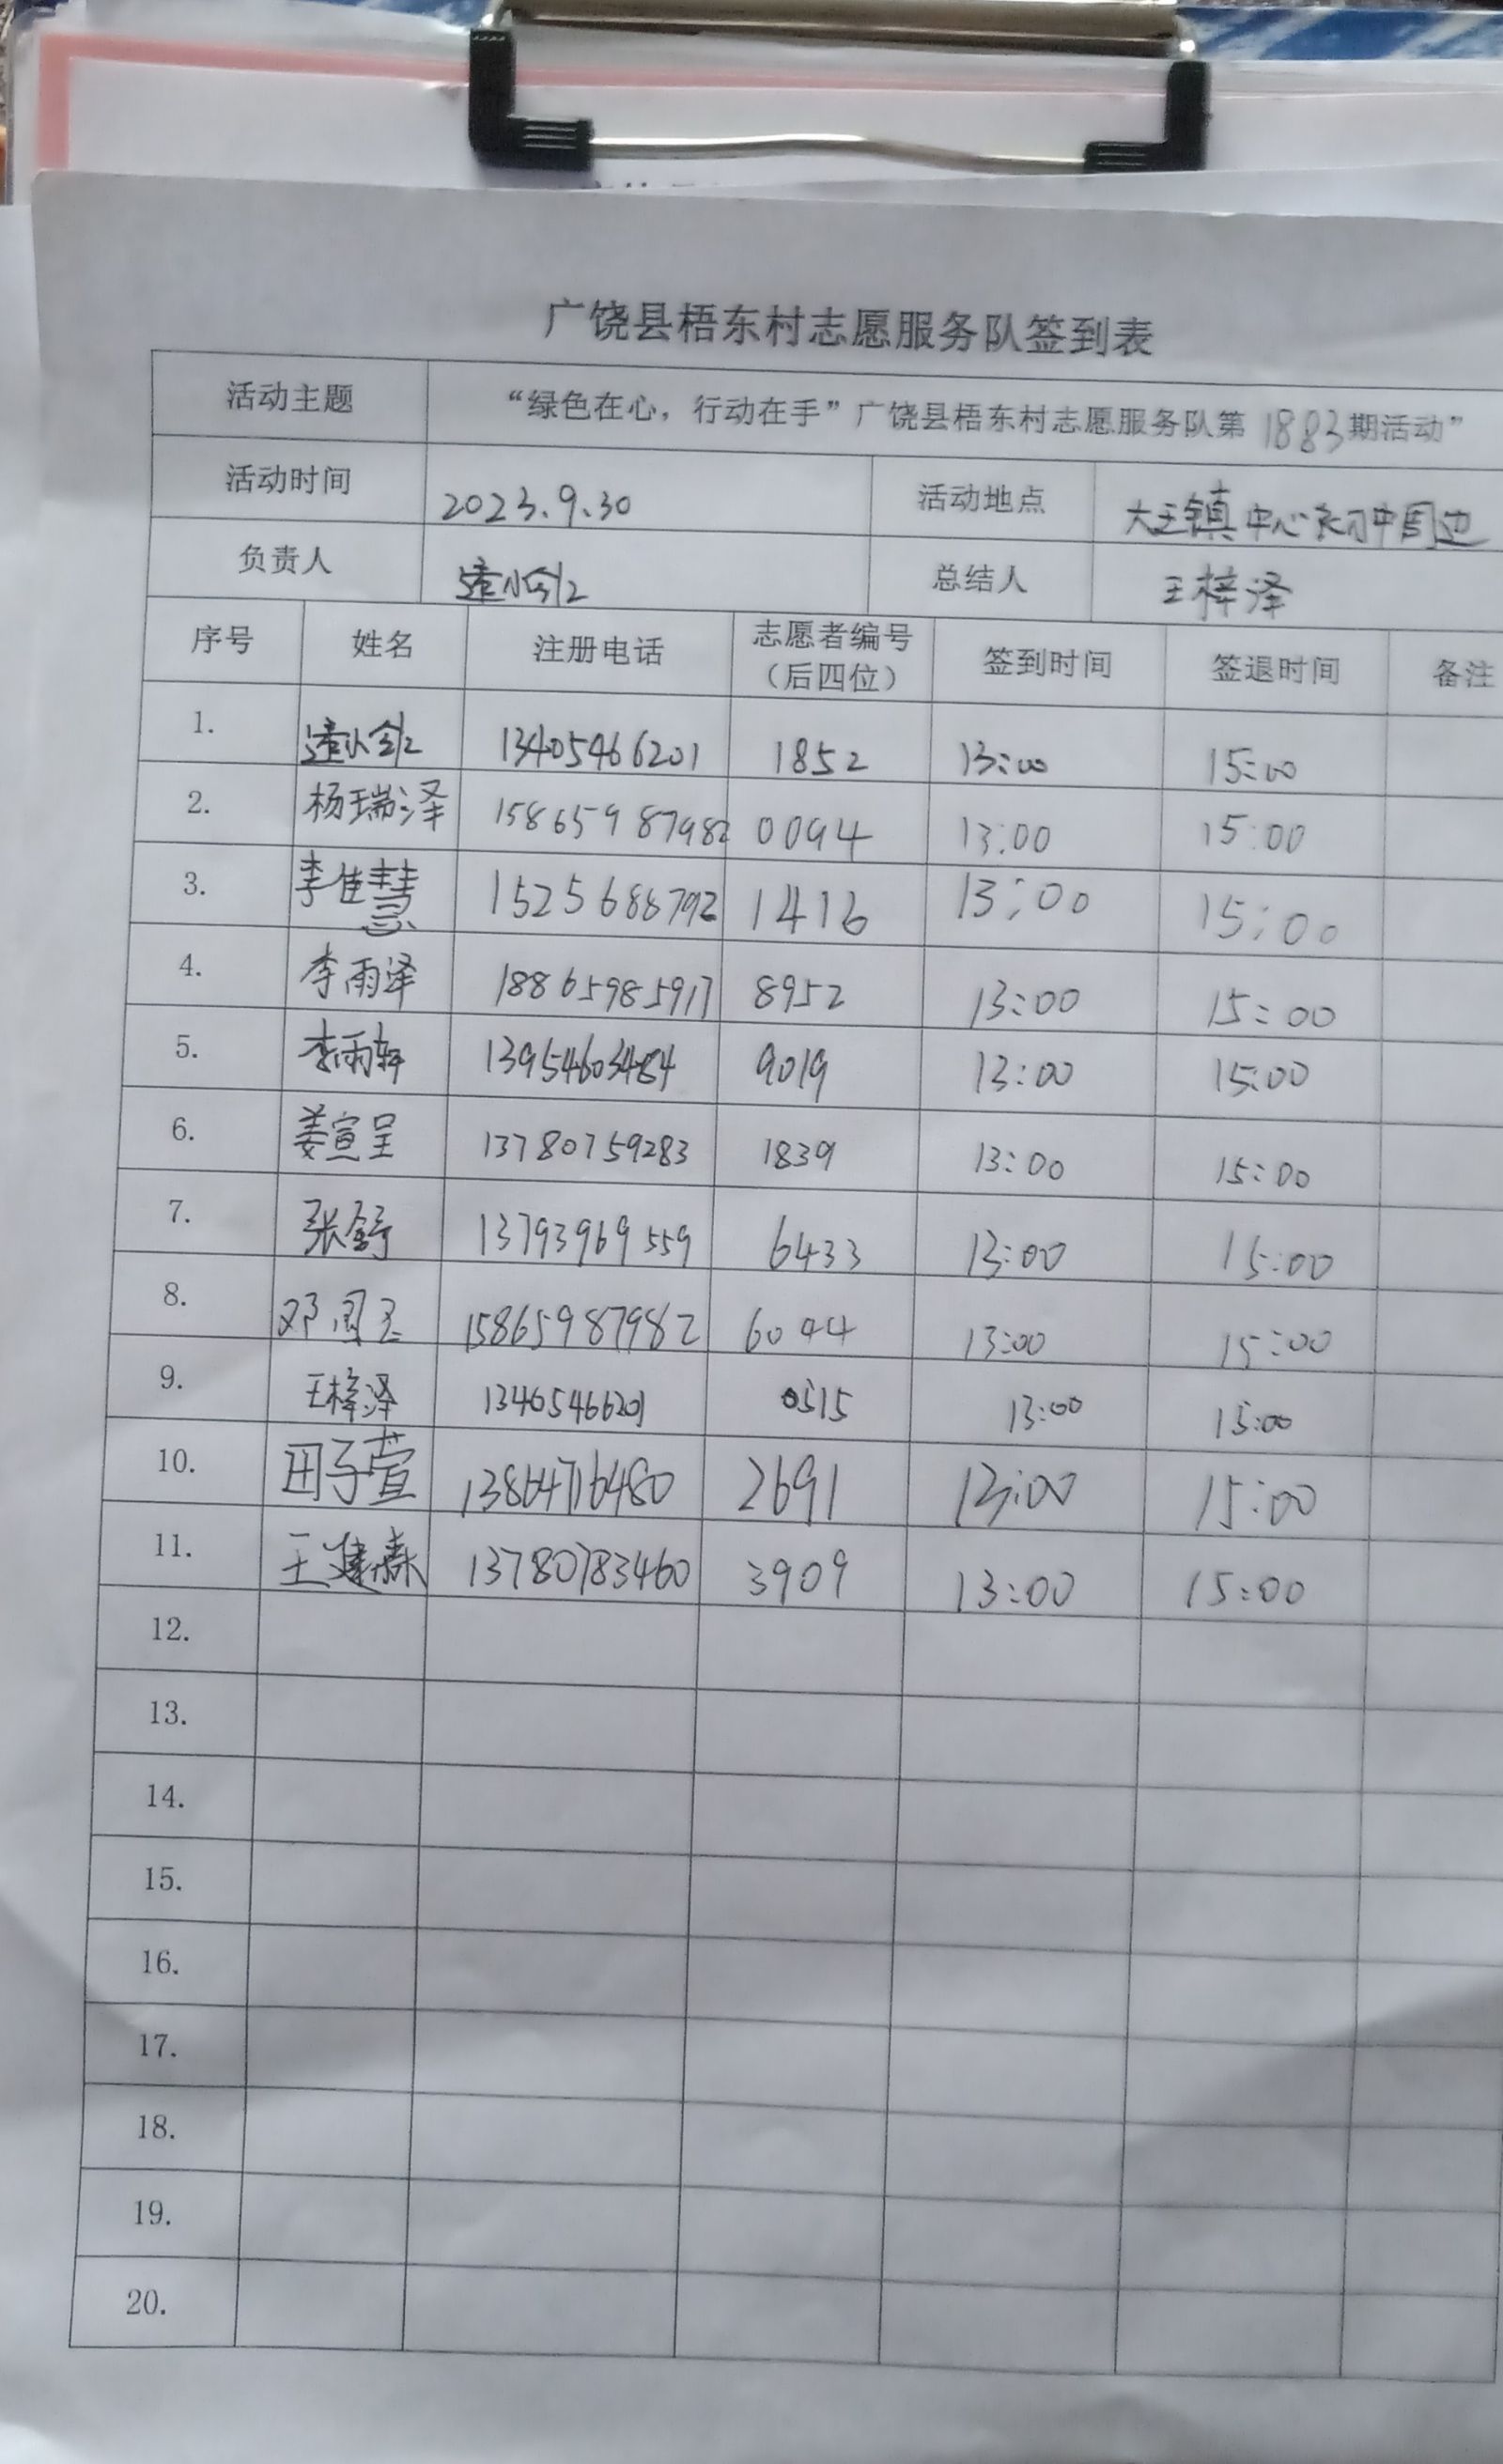 广饶县梧东村志愿服务队签到表
活动主题 “绿色在心，行动在手”广饶县梧东村志愿服务队第1883期活动”
活动时间 2023.9.30 活动地点 大王镇中心初中周边
负责人 总结人 王梓泽
序号 姓名 注册电话 志愿者编号（后四位） 签到时间 签退时间 备注
1. 13405466201 1852 13:00 15:00
2. 杨瑞泽 15865987982 0094 13:00 15:00
3. 李佳慧 1525688792 1416 13:00 15:00
4. 李雨泽 18865985917 8952 13:00 15:00
5. 李雨轩 13954603484 9019 13:00 15:00
6. 姜宣呈 13780759283 1839 13:00 15:00
7. 张舒 13793969559 6433 13:00 15:00
8. 邓 15865987982 6044 13:00 15:00
9. 王梓泽 13405466201 0515 13:00 15:00
10. 田子萱 13864716480 2691 13:00 15:00
11. 王建森 13780783460 3909 13:00 15:00
12.
13.
14.
15.
16.
17.
18.
19.
20.